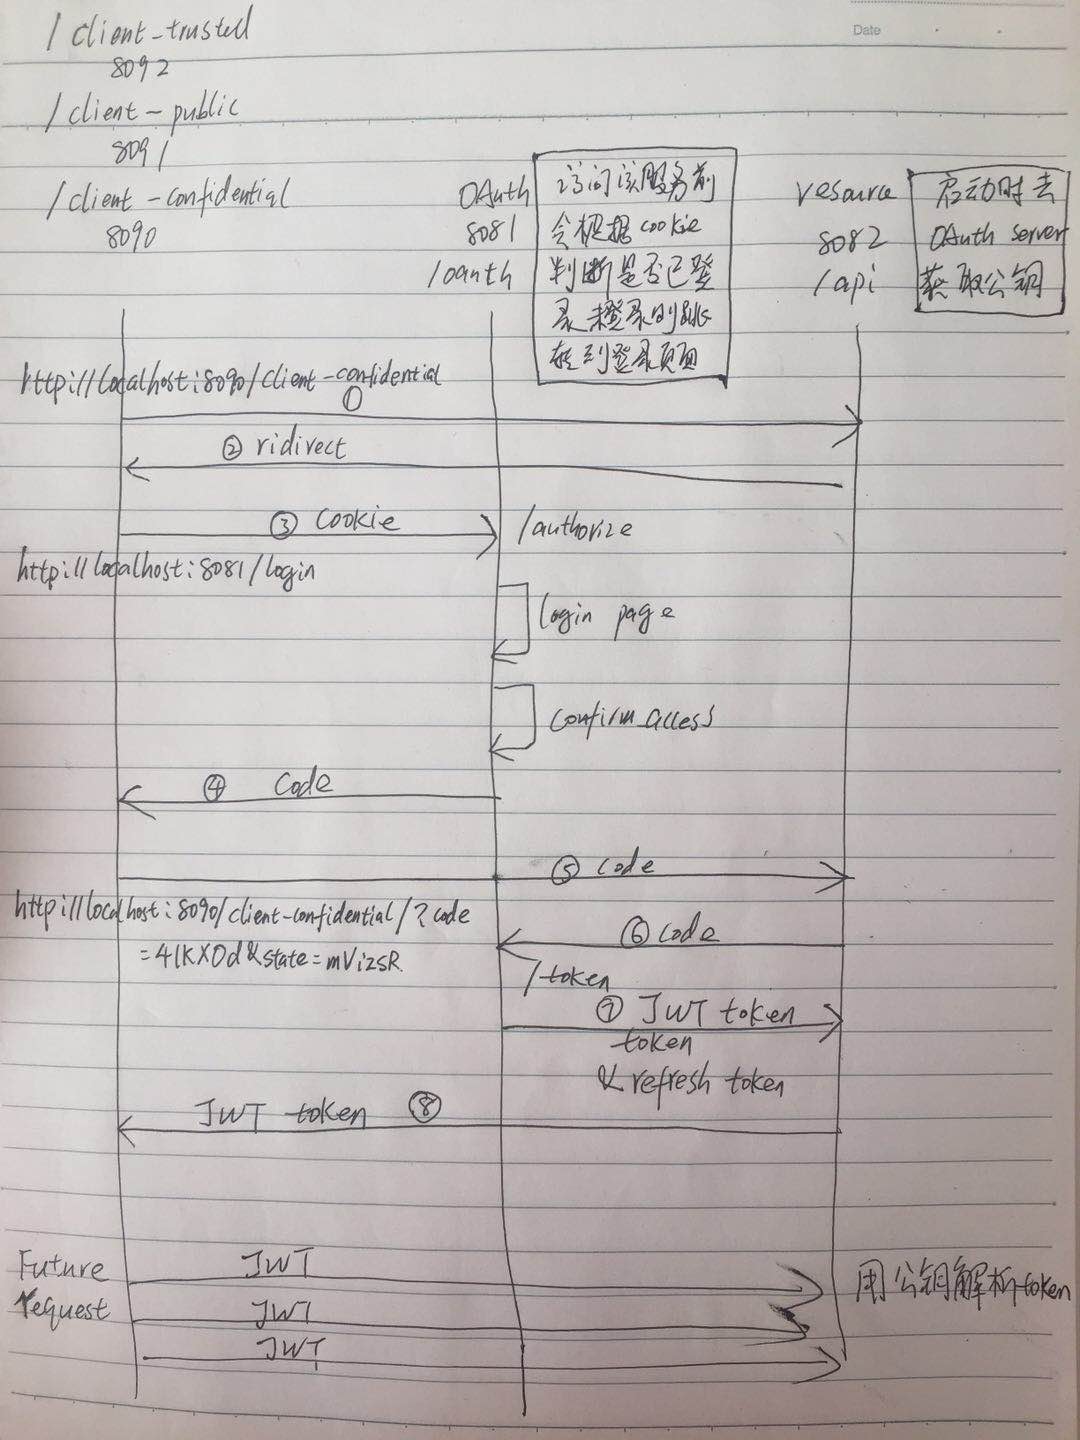 /client-trusted
8092
/client-public
8091
/client-confidential
8090
Date
OAuth
8081
/oauth
访问该服务前
会根据cookie
判断是否已登
录未登录则跳
转到登录页面
resource
8082
/api
启动时去
OAuth server
获取公钥
http://localhost:8090/client-confidential
①
② ridirect
③ cookie
/authorize
http://localhost:8081/login
login page
confirm access
④ code
⑤ code
http://localhost:8090/client-confidential/?code
=41KXOd&state=mVizsR
⑥ code
/token
⑦ JWT token
token
& refresh token
JWT token ⑧
Future
request
JWT
JWT
JWT
用公钥解析token